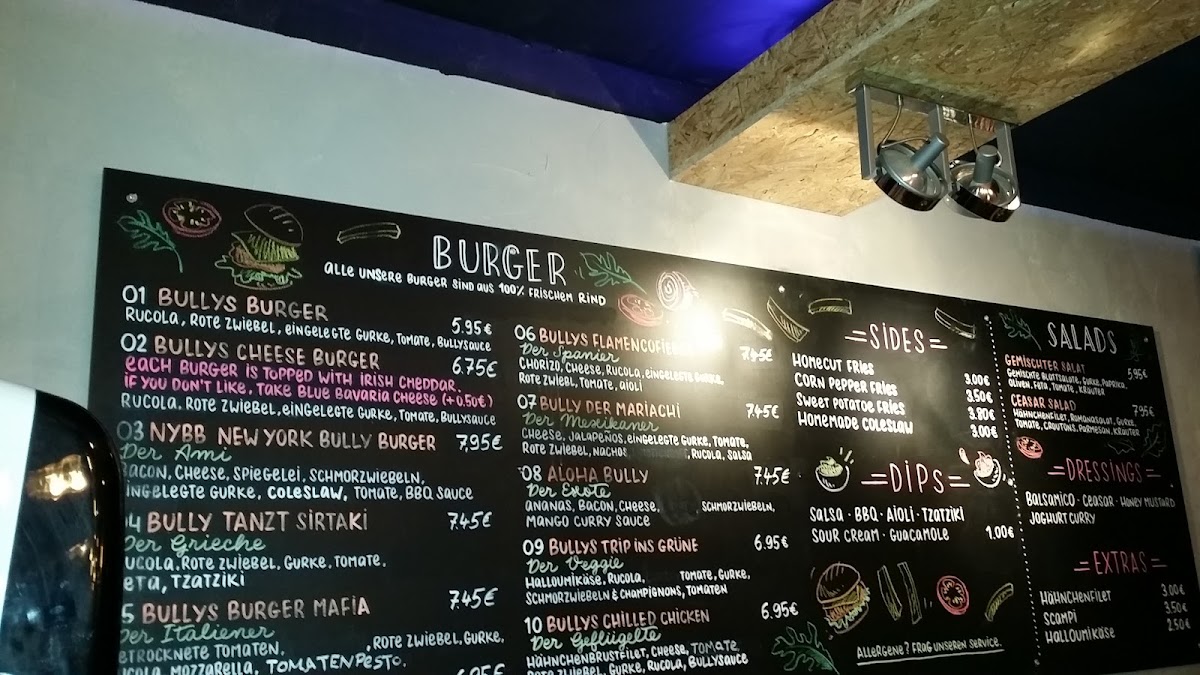 BURGER
ALLE UNSERE BURGER SIND AUS 100% FRISCHEM RIND
01 BULLYS BURGER 5.95€
RUCOLA, ROTE ZWIEBEL, EINGELEGTE GURKE, TOMATE, BULLYSAUCE
02 BULLYS CHEESE BURGER 6.75€
EACH BURGER IS TOPPED WITH IRISH CHEDDAR.
IF YOU DON'T LIKE, TAKE BLUE BAVARIA CHEESE (+0.50€)
RUCOLA, ROTE ZWIEBEL, EINGELEGTE GURKE, TOMATE, BULLYSAUCE
03 NYBB NEW YORK BULLY BURGER 7,95€
Der Ami
BACON, CHEESE, SPIEGELEI, SCHMORZWIEBELN,
EINGELEGTE GURKE, COLESLAW, TOMATE, BBQ SAUCE
04 BULLY TANZT SIRTAKI 7.45€
Der Grieche
RUCOLA, ROTE ZWIEBEL, GURKE, TOMATE,
FETA, TZATZIKI
05 BULLYS BURGER MAFIA 7.45€
Der Italiener
GETROCKNETE TOMATEN, , ROTE ZWIEBEL, GURKE,
RUCOLA, MOZZARELLA, TOMATENPESTO.
6.95€
06 BULLYS FLAMENCOFIE 7.45€
Der Spanier
CHORIZO, CHEESE, RUCOLA, EINGELEGTE GURKE,
ROTE ZWIEBEL, TOMATE, AIOLI
07 BULLY DER MARIACHI 7.45€
Der Mexikaner
CHEESE, JALAPEÑOS, EINGELEGTE GURKE, TOMATE,
ROTE ZWIEBEL, NACHOS, , RUCOLA, SALSA
08 ALOHA BULLY 7.45€
Der Exote
ANANAS, BACON, CHEESE, SCHMORZWIEBELN,
MANGO CURRY SAUCE
09 BULLYS TRIP INS GRÜNE 6.95€
Der Veggie
HALLOUMIKÄSE, RUCOLA, TOMATE, GURKE,
SCHMORZWIEBELN & CHAMPIGNONS, TOMATEN
10 BULLYS CHILLED CHICKEN 6.95€
Der Geflügelte
HÄHNCHENBRUSTFILET, CHEESE, TOMATE,
ROTE ZWIEBEL, GURKE, RUCOLA, BULLYSAUCE
SIDES
HOMECUT FRIES 3.00€
CORN PEPPER FRIES 3.50€
SWEET POTATOE FRIES 3.80€
HOMEMADE COLESLAW 3.00€
DIPS
SALSA · BBQ · AIOLI · TZATZIKI
SOUR CREAM · GUACAMOLE 1.00€
ALLERGENE? FRAG UNSEREN SERVICE.
SALADS
GEMISCHTER SALAT 5,95€
GEMISCHTE BLATTSALATE, GURKE, PAPRIKA,
OLIVEN, FETA, TOMATE, KRÄUTER
CEASAR SALAD 7.95€
HÄHNCHENFILET, ROMANASALAT, GURKE,
TOMATE, CROUTONS, PARMESAN, KRÄUTER
DRESSINGS
BALSAMICO · CEASAR · HONEY MUSTARD
JOGHURT CURRY
EXTRAS
HÄHNCHENFILET 3.00€
SCAMPI 3.50€
HALLOUMIKÄSE 2.50€